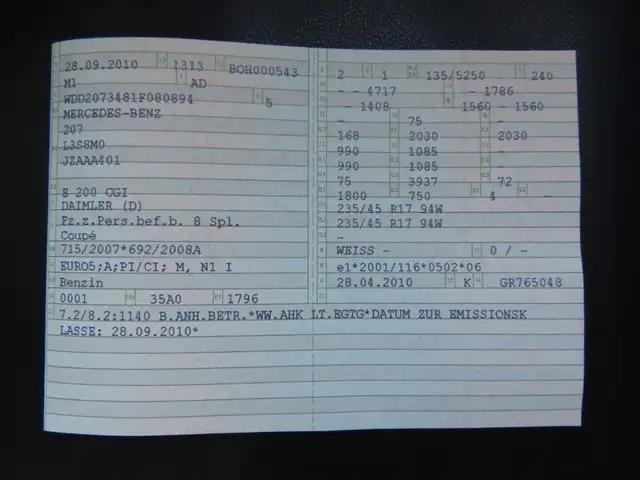 28.09.2010 1313 BOH000543
M1 AD
WDD2073481F080894 5
MERCEDES-BENZ
207
L3S8M0
JZAAA401
E 200 CGI
DAIMLER (D)
Fz.z.Pers.bef.b. 8 Spl.
Coupé
715/2007*692/2008A
EURO5;A;PI/CI; M, N1 I
Benzin
0001 35A0 1796
2 1 135/5250 240
- - 4717 - 1786
- 1408 1560 - 1560
- 75 -
168 2030 2030
990 1085 -
990 1085 -
75 3937 72
1800 750 4 -
235/45 R17 94W
235/45 R17 94W
-
WEISS - 0 / -
e1*2001/116*0502*06
28.04.2010 K GR765048
7.2/8.2:1140 B.ANH.BETR.*WW.AHK LT.EGTG*DATUM ZUR EMISSIONSK
LASSE: 28.09.2010*